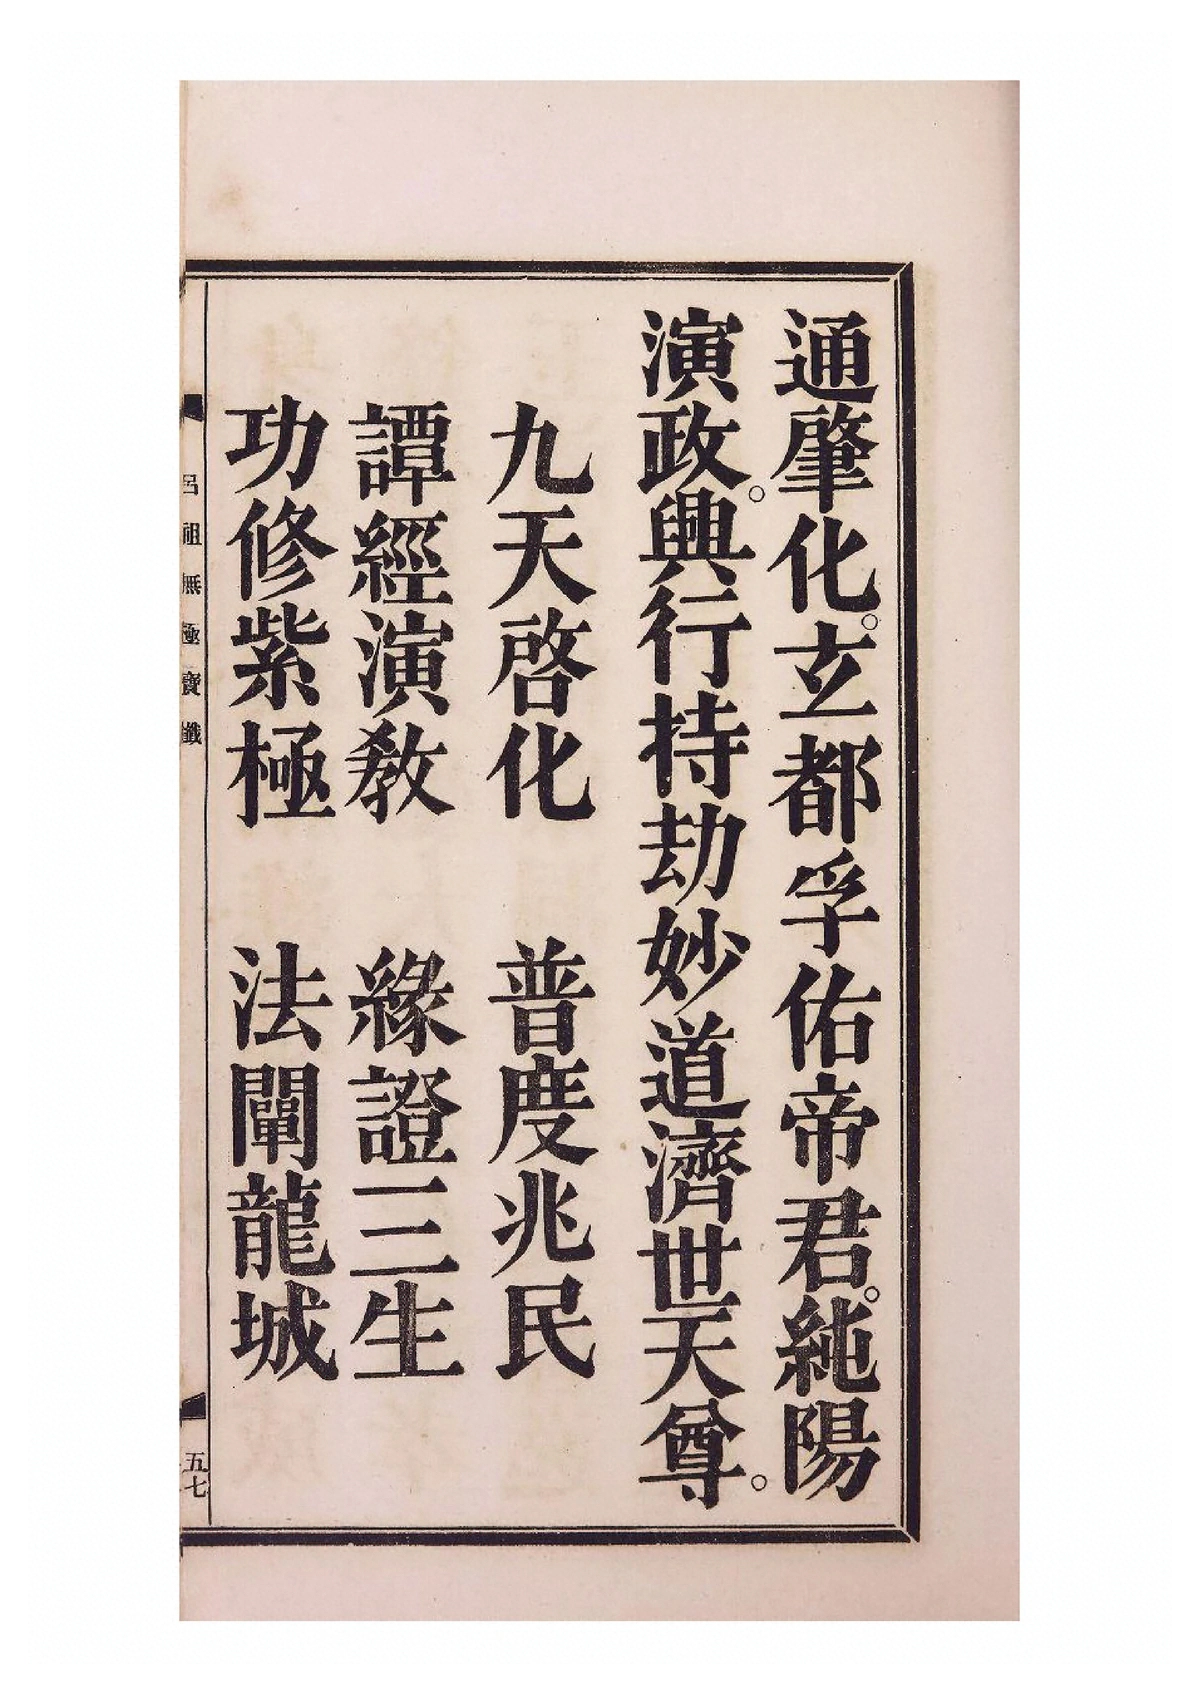 通肇化。玄都孚佑帝君。純陽
演政。興行持劫妙道濟世天尊。
九天啓化　普度兆民
譚經演教　緣證三生
功修紫極　法闡龍城
呂祖無極寶懺
五七